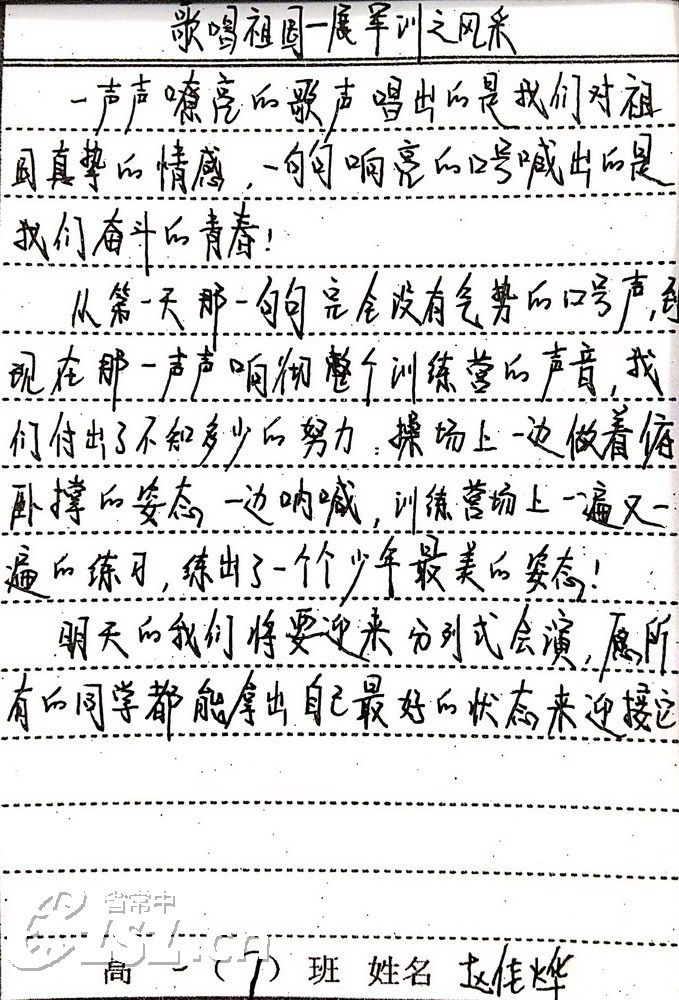 歌唱祖国一展军训之风采
一声声嘹亮的歌声唱出的是我们对祖
国真挚的情感,一句句响亮的口号喊出的是
我们奋斗的青春!
从第一天那一句句完全没有气势的口号声,到
现在那一声声响彻整个训练营的声音,我
们付出了不知多少的努力:操场上一边做着俯
卧撑的姿态一边呐喊,训练营场上一遍又一
遍的练习,练出了一个个少年最美的姿态!
明天的我们将要迎来分列式会演,愿所
有的同学都能拿出自己最好的状态来迎接它
省常中
CSL.cn
高一(7)班 姓名 赵佳烨